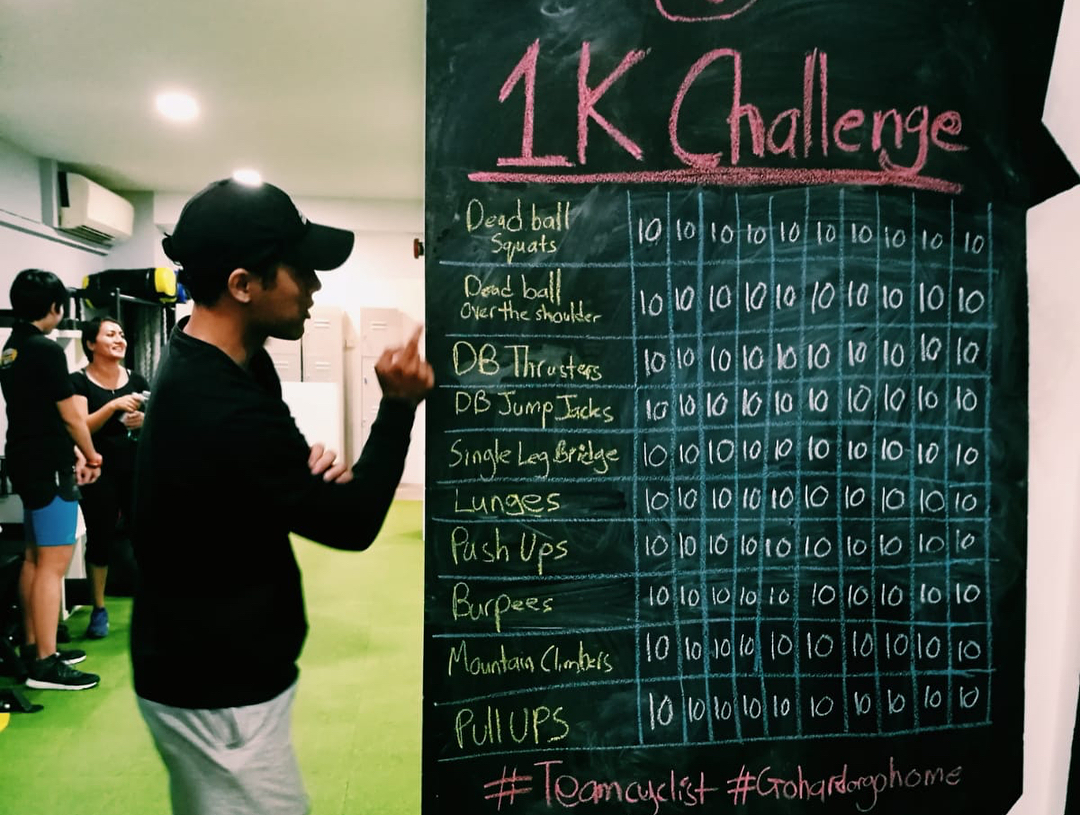 1K Challenge
Dead ball
Squats
10 10 10 10 10 10 10 10 10 10
Dead ball
Over the shoulder
10 10 10 10 10 10 10 10 10 10
DB Thrusters
10 10 10 10 10 10 10 10 10 10
DB Jump Jacks
10 10 10 10 10 10 10 10 10 10
Single Leg Bridge
10 10 10 10 10 10 10 10 10 10
Lunges
10 10 10 10 10 10 10 10 10 10
Push Ups
10 10 10 10 10 10 10 10 10 10
Burpees
10 10 10 10 10 10 10 10 10 10
Mountain Climbers
10 10 10 10 10 10 10 10 10 10
Pull UPS
10 10 10 10 10 10 10 10 10 10
#Teamcyclist #Gohardorgohome